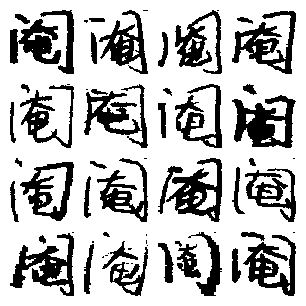 阉阉阉阉
阉阉阉阉
阉阉阉阉
阉阉阉阉